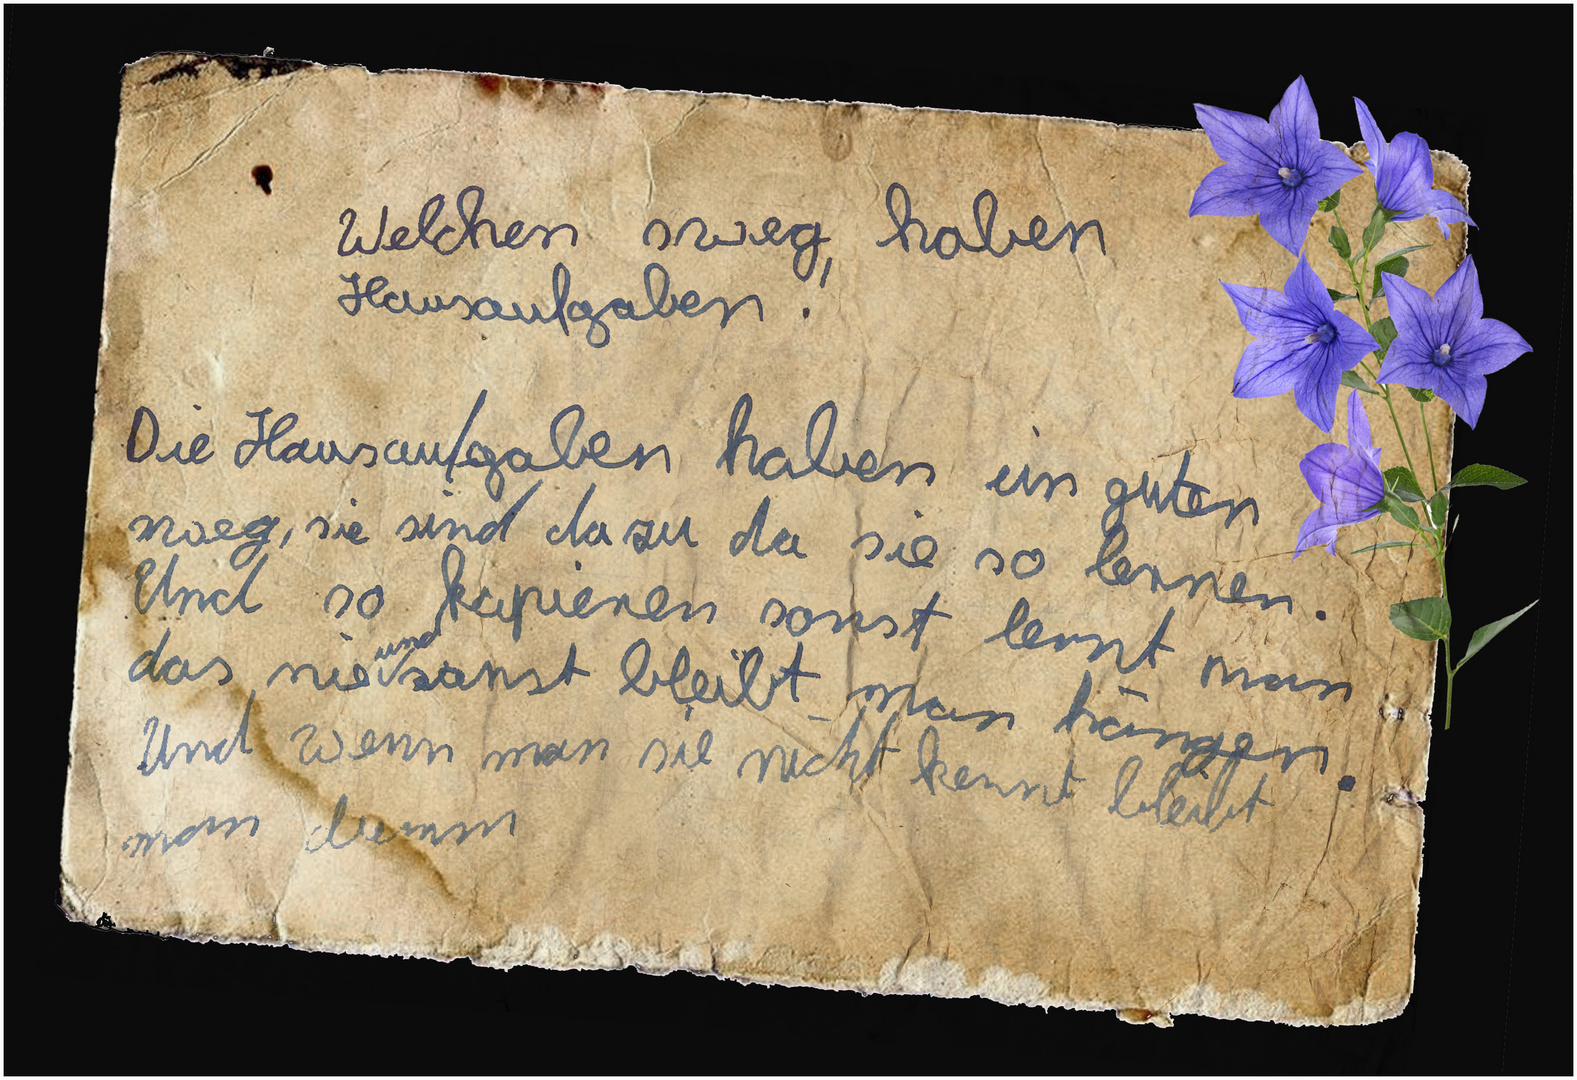 Welchen szweg, haben
Hausaufgaben!
Die Hausaufgaben haben ein guten
zweg, sie sind dazu da sie so lernen.
Und so kapieren sonst lernt man
das nie und sonst bleibt man hängen.
Und wenn man sie nicht kennt bleibt
man dumm